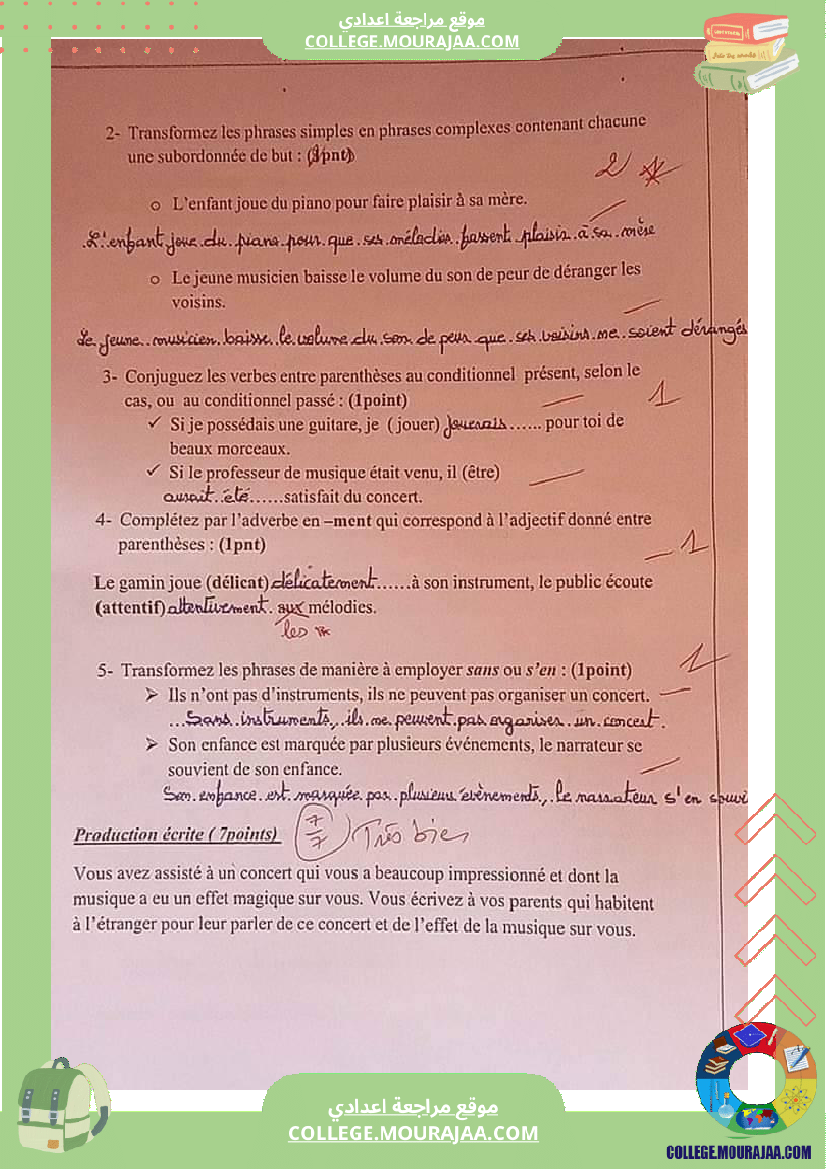 موقع مراجعة اعدادي
COLLEGE.MOURAJAA.COM
2- Transformez les phrases simples en phrases complexes contenant chacune
une subordonnée de but : (pnt)
2
o L'enfant joue du piano pour faire plaisir à sa mère.
L'enfant joue du piano pour que ses mélodies fassent plaisir à sa mère
o Le jeune musicien baisse le volume du son de peur de déranger les
voisins.
Le jeune musicien baisse le volume du son de peur que ses voisins ne soient dérangés
3- Conjuguez les verbes entre parenthèses au conditionnel présent, selon le
cas, ou au conditionnel passé : (1point)
1
✓ Si je possédais une guitare, je ( jouer) jouerais...... pour toi de
beaux morceaux.
✓ Si le professeur de musique était venu, il (être)
aurait été......satisfait du concert.
4- Complétez par l'adverbe en –ment qui correspond à l'adjectif donné entre
parenthèses : (1pnt)
1
Le gamin joue (délicat) délicatement......à son instrument, le public écoute
(attentif) attentivement. aux mélodies.
les
5- Transformez les phrases de manière à employer sans ou s'en : (1point)
1
➢ Ils n'ont pas d'instruments, ils ne peuvent pas organiser un concert.
...Sans instruments, ils ne peuvent pas organiser un concert.
➢ Son enfance est marquée par plusieurs événements, le narrateur se
souvient de son enfance.
Son enfance est marquée par plusieurs évènements, le narrateur s'en souvi
Production écrite ( 7points) 7/7 Très bien
Vous avez assisté à un concert qui vous a beaucoup impressionné et dont la
musique a eu un effet magique sur vous. Vous écrivez à vos parents qui habitent
à l'étranger pour leur parler de ce concert et de l'effet de la musique sur vous.
موقع مراجعة اعدادي
COLLEGE.MOURAJAA.COM
COLLEGE.MOURAJAA.COM